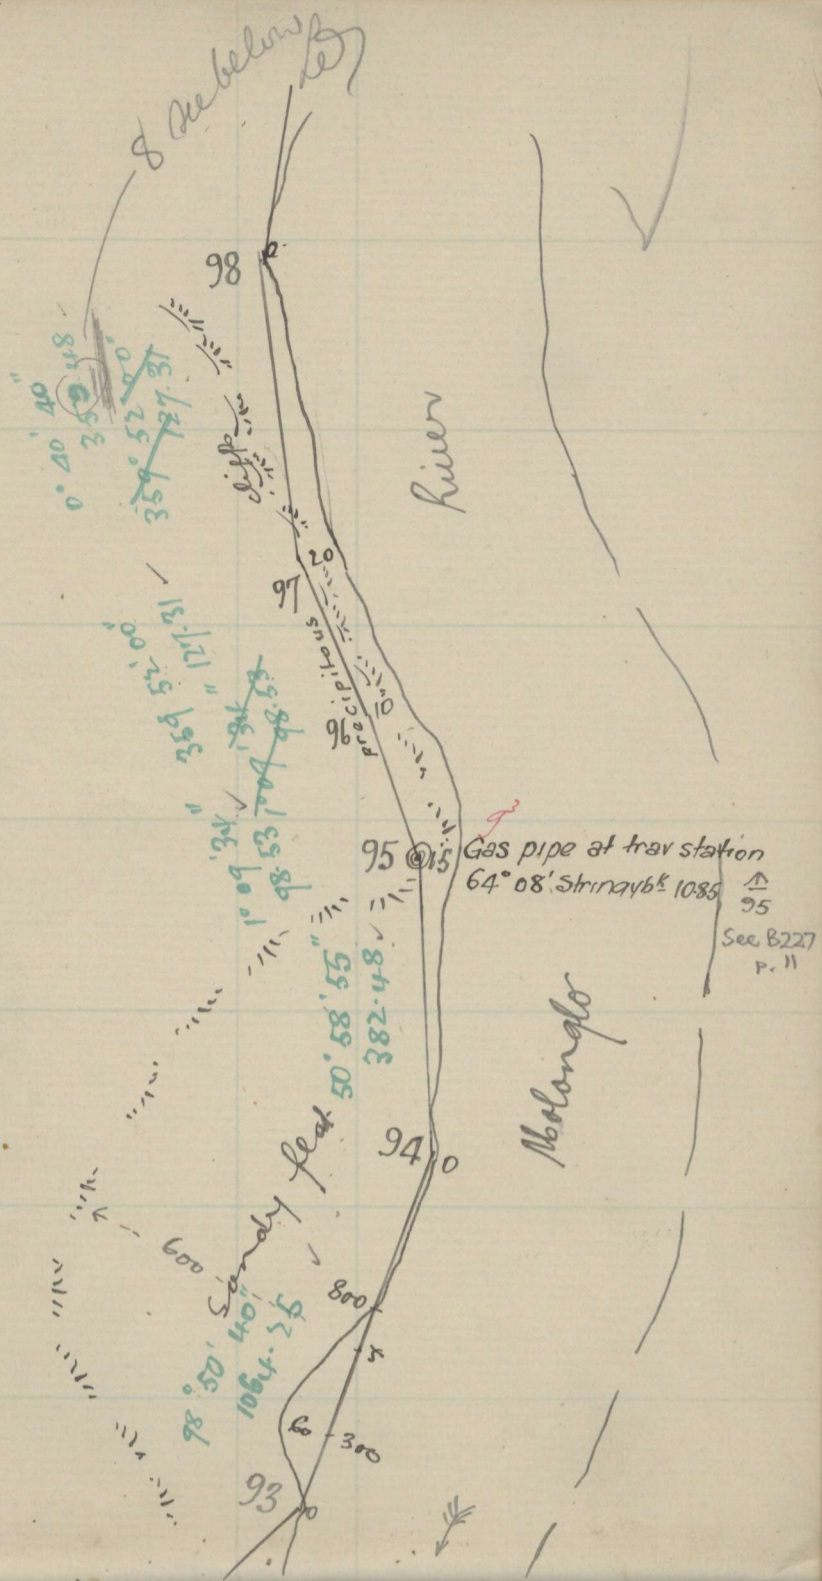 8 See below
98
0° 40' 40"
359.48
359° 52' 00"
127.31
cliffs
River
20
97
359 52' 00"
" 127.31
precipitous
10
96
1° 09' 34"
98.53
1° 09' 34"
98.53
95 15 Gas pipe at trav station
64° 08' Stringybk 1085
↑
95
See B227
p. 11
50° 58' 55"
382.48
Molonglo
94 0
Sandy flat
600
800
98° 50' 40"
1064.25
5
60 300
93 0